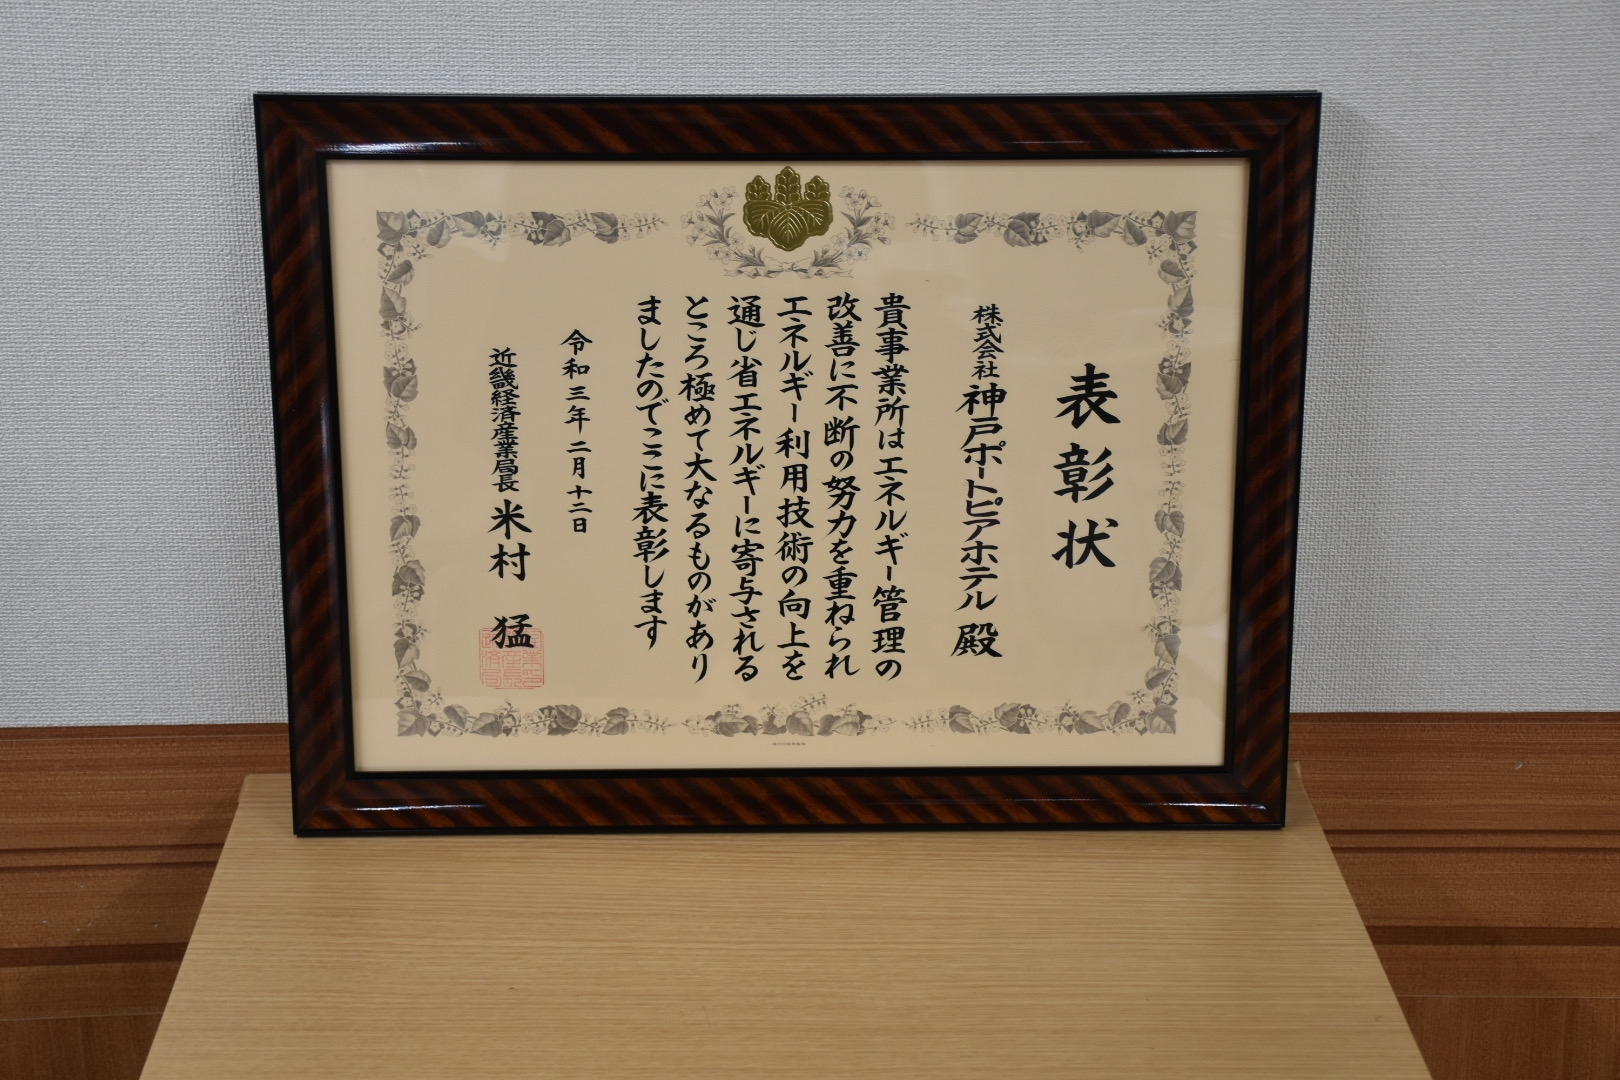 表彰状
株式会社 神戸ポートピアホテル 殿
貴事業所はエネルギー管理の
改善に不断の努力を重ねられ
エネルギー利用技術の向上を
通じ省エネルギーに寄与される
ところ極めて大なるものがあり
ましたのでここに表彰します
令和三年二月十二日
近畿経済産業局長 米村 猛